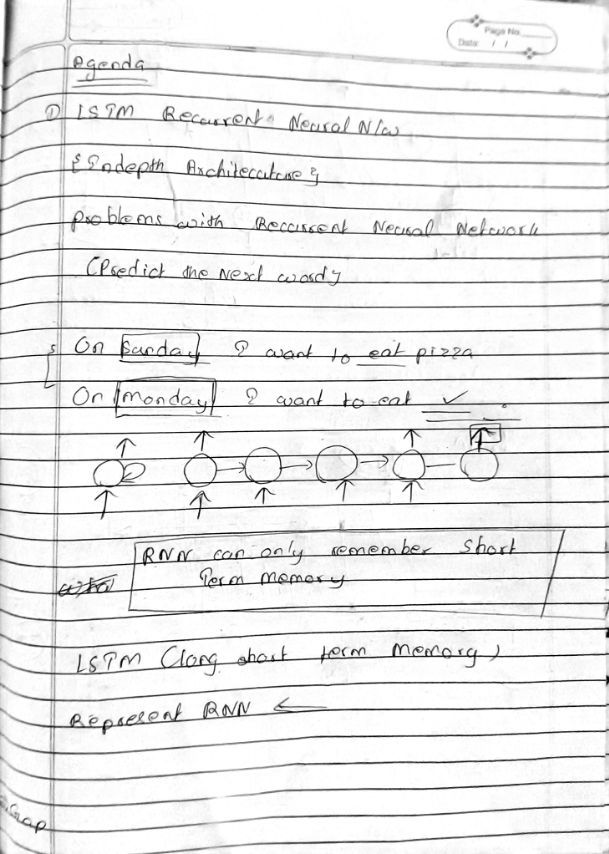 Page No.
Date: / /
Agenda
① LSTM Recurrent Neural N/w
{Indepth Architecuture}
Problems with Reccurent Neural Network
(Predict the Next word)
On Sunday I want to eat pizza
On Monday I want to eat
RNN can only remember short
Term memory
LSTM (long short term Memory)
Represent RNN ←